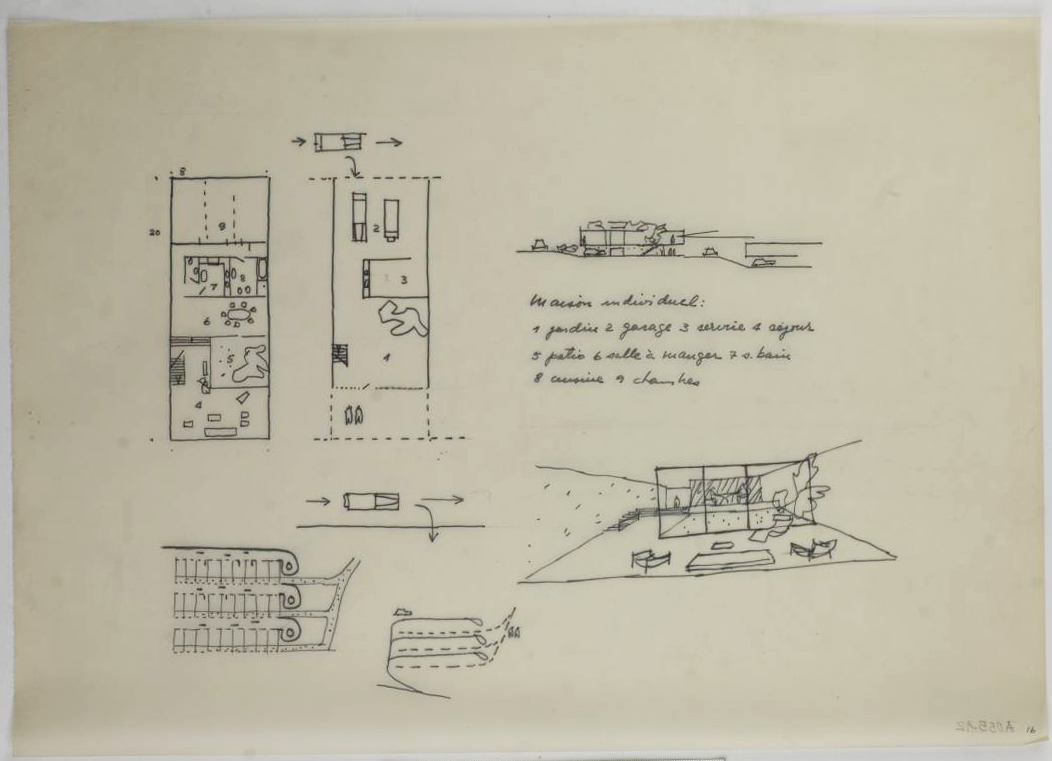 8
20
9
7
8
6
5
4
2
3
1
Maison individuel:
1 jardin 2 garage 3 service 4 séjour
5 patio 6 salle à manger 7 s. bain
8 cuisine 9 chambres
A055.A2
16